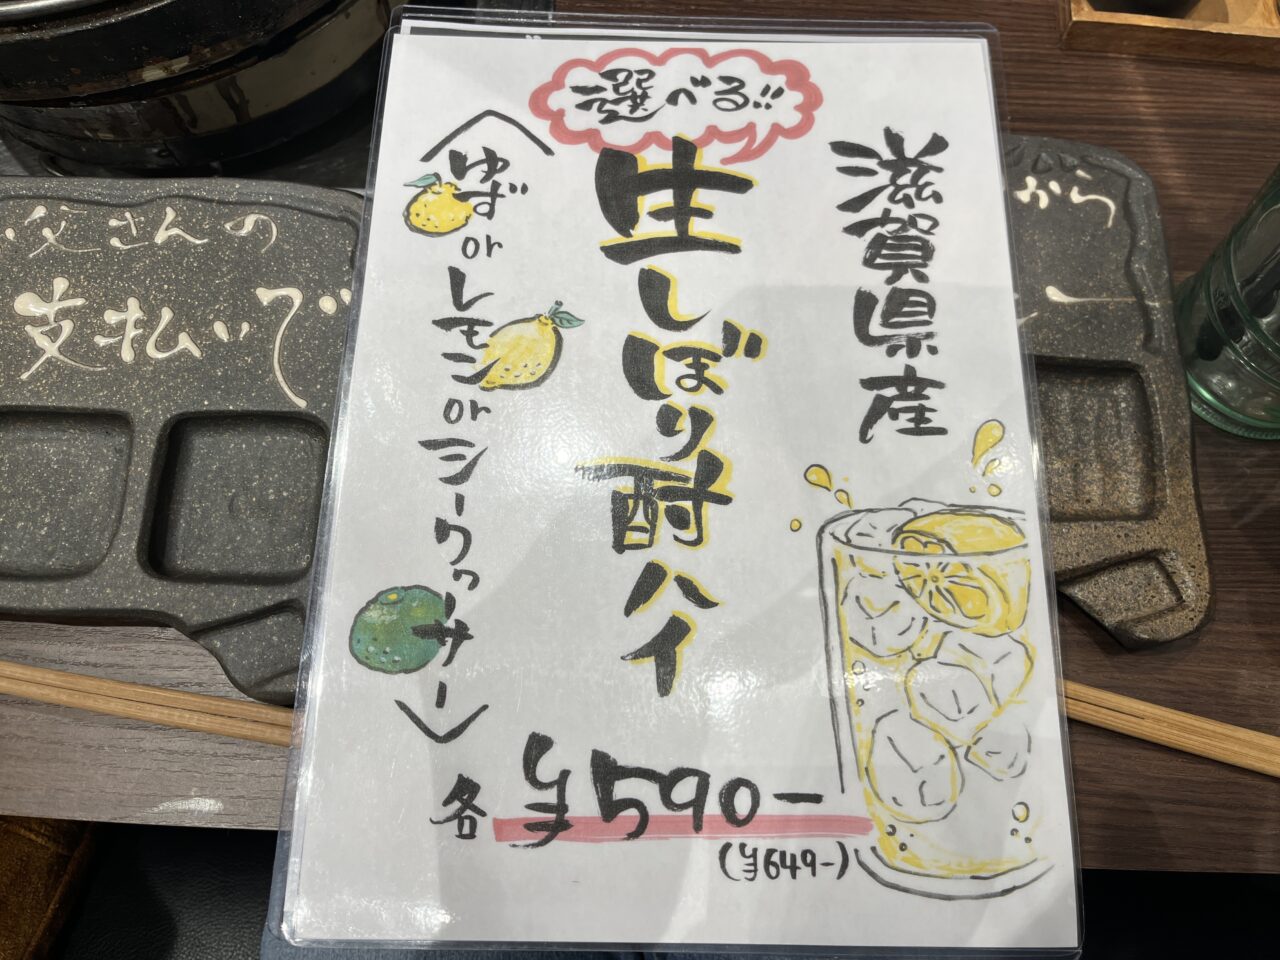 選べる!!
滋賀県産
生しぼり酎ハイ
〈ゆず or レモン or シークヮサー〉
各 ¥590-
(¥649-)
父さんの
支払いで
から